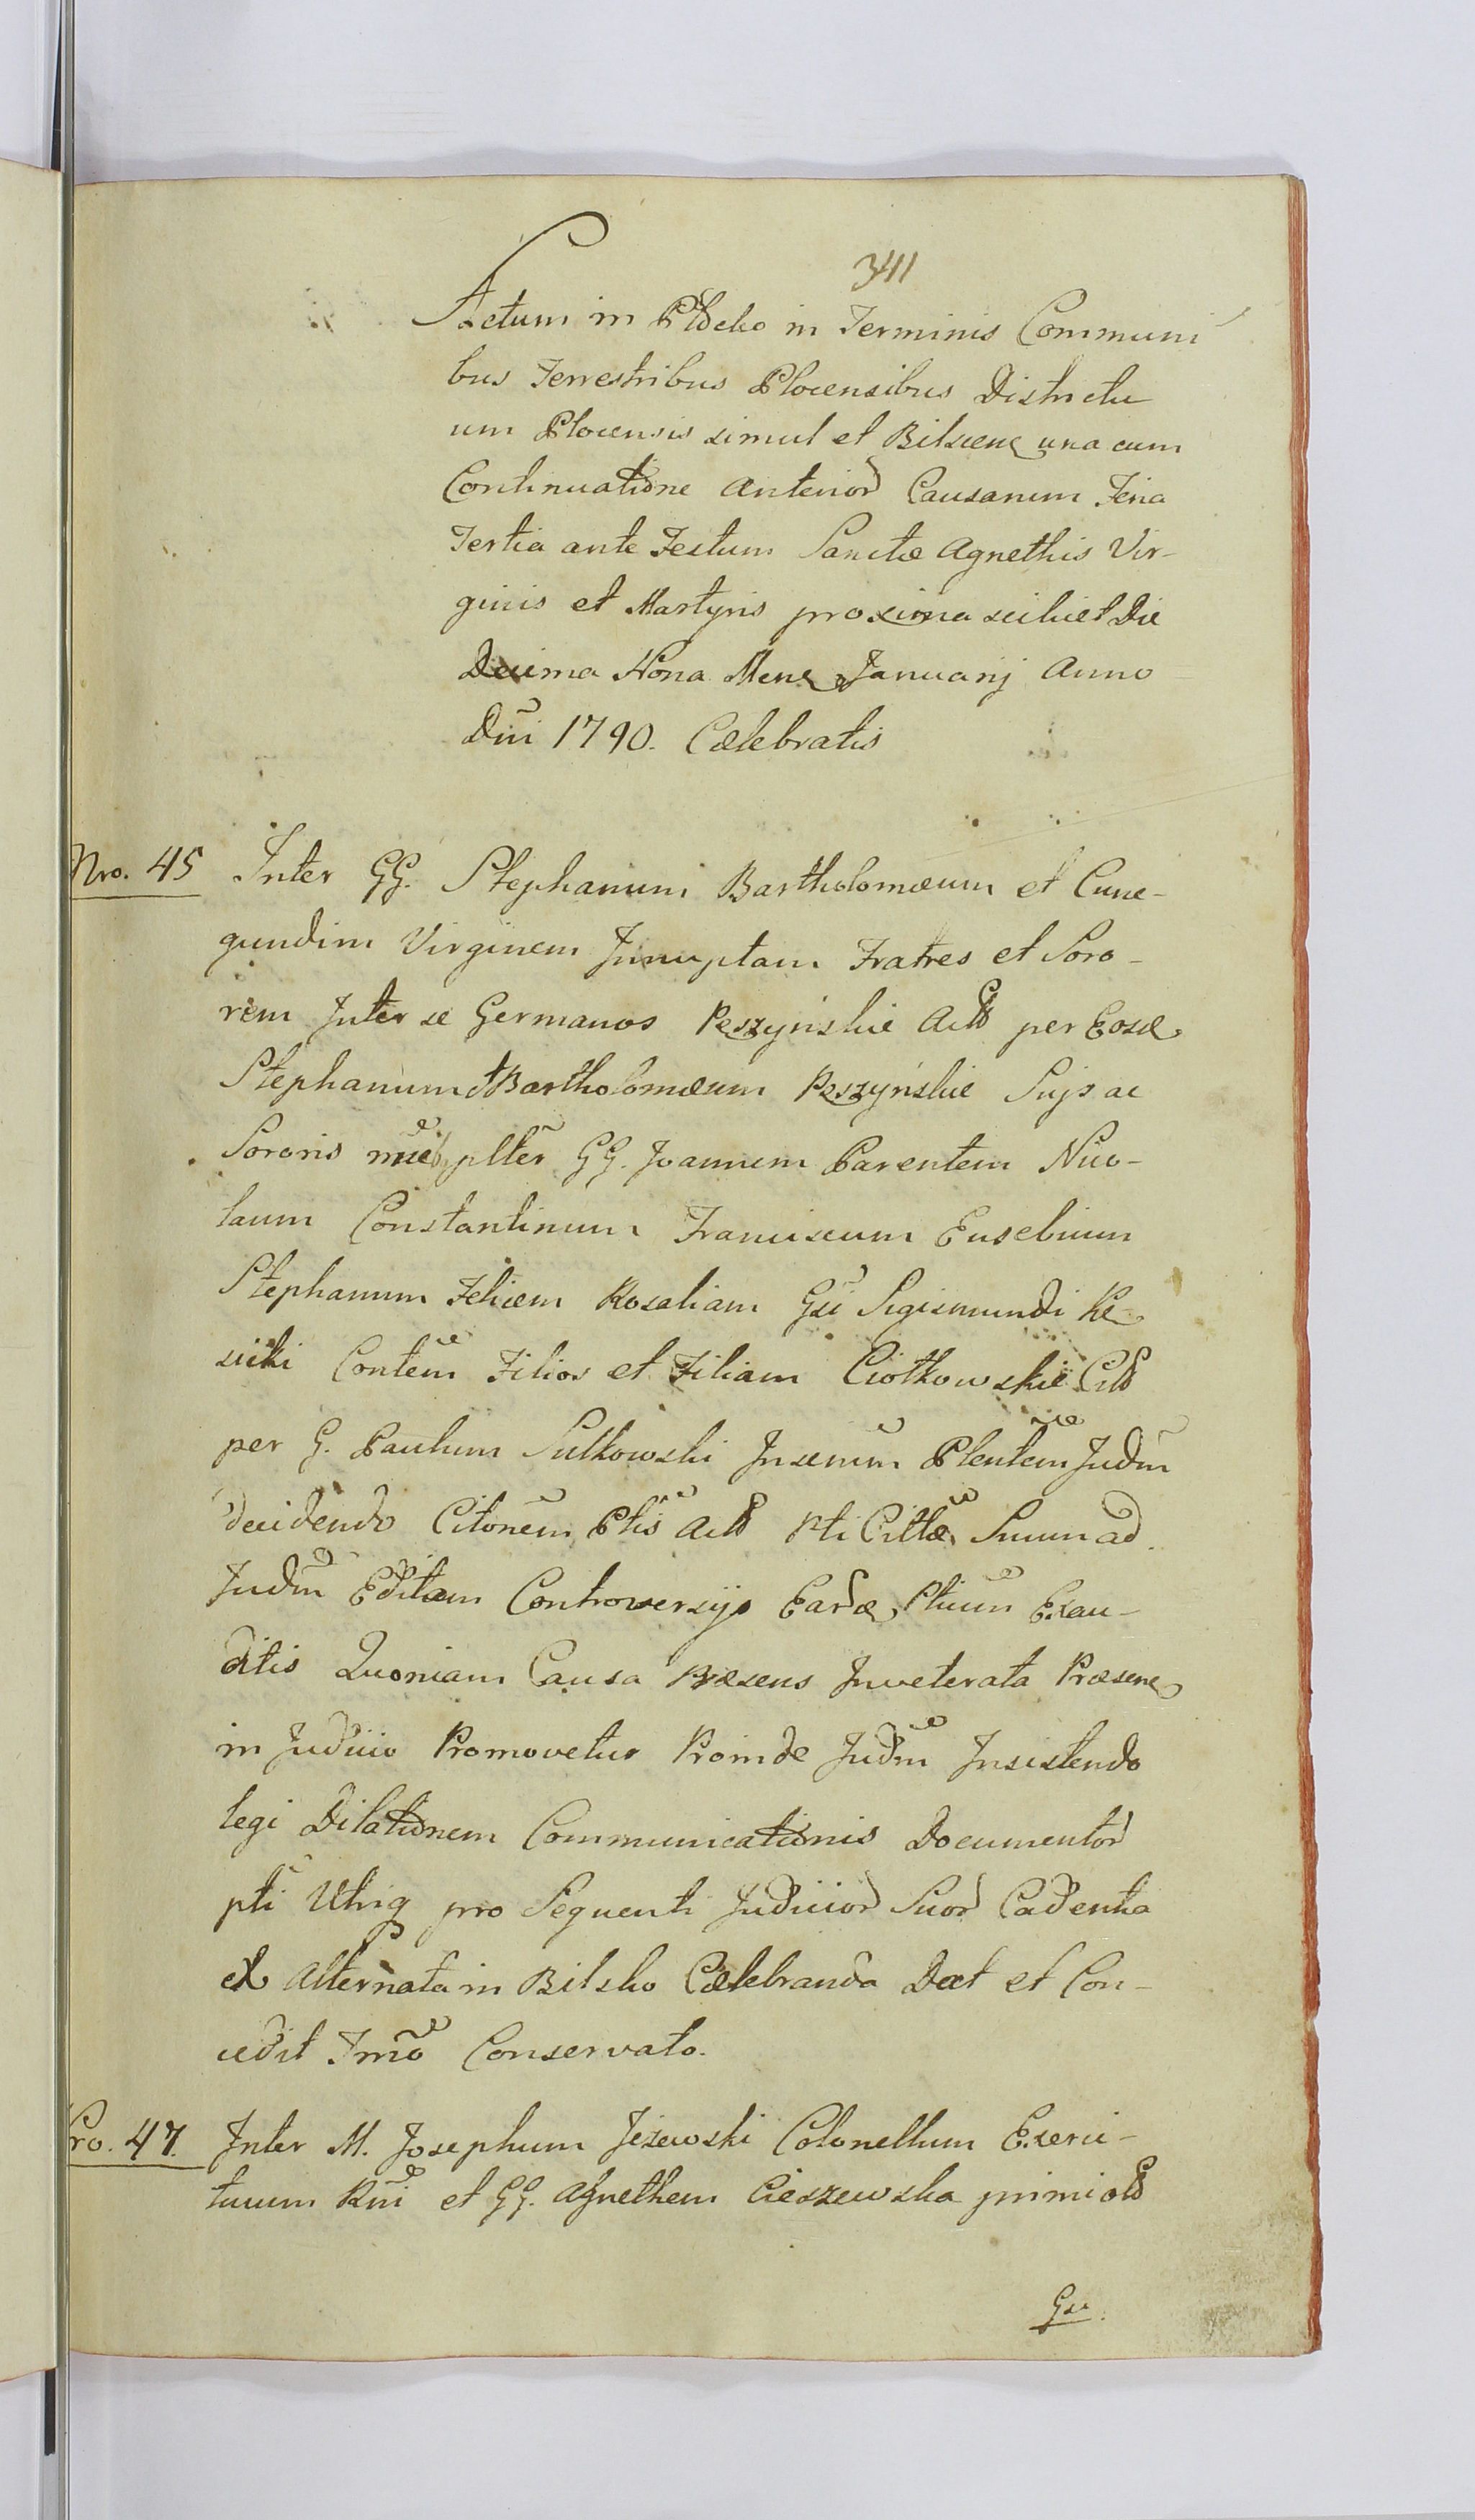 341
Actum in Plocko in Terminis Communi
bus Terrestribus Plocensibus Districtu
um Plocensis simul et Bilscen una cum
Continuatione Anterior Causarum Feria
Tertia ante Festum Sanctæ Agnethis Vir-
ginis et Martyris proxima scilicet Die
Decima Nona Mens Januarij Anno
Dni 1790. Cælebratis
Nro. 45 Inter GG. Stephanum Bartholomæum et Cune-
gundim Virginem Innuptam Fratres et Soro-
rem Inter se Germanos Peszyńskie Act per Eosd
Stephanum et Bartholomæum Peszyńskie Sui ac
Sororis plter GG. Joannem Parentem Nico-
laum Constantinum Franciscum Eusebium
Stephanum Felicem Rosaliam Gsi Sigismundi
Contem Filios et Filiam Ciołkowskie Cit
per G. Paulum Sulkowski Plentem Judm
decidendo Citonem Ptis Act Pti Citt Suum ad
Judm Editam Controversijs Eard Ptium Exau-
ditis Quoniam Causa Præsens Inveterata Præsens
in Judicio Promovetur Proinde Judm Insistendo
legi Dilationem Communicationis Documentor
pti Utriq pro Sequenti Judicior Suor Cadentia
ex Alternata in Bilsko Cælebranda Dat et Con-
cedit Tmo Conservato.
ro. 47. Inter M. Josephum Jeżewski Colonellum Exerci-
tuum Rni et GG. Agnethem Cieszewska primi
Gsi.